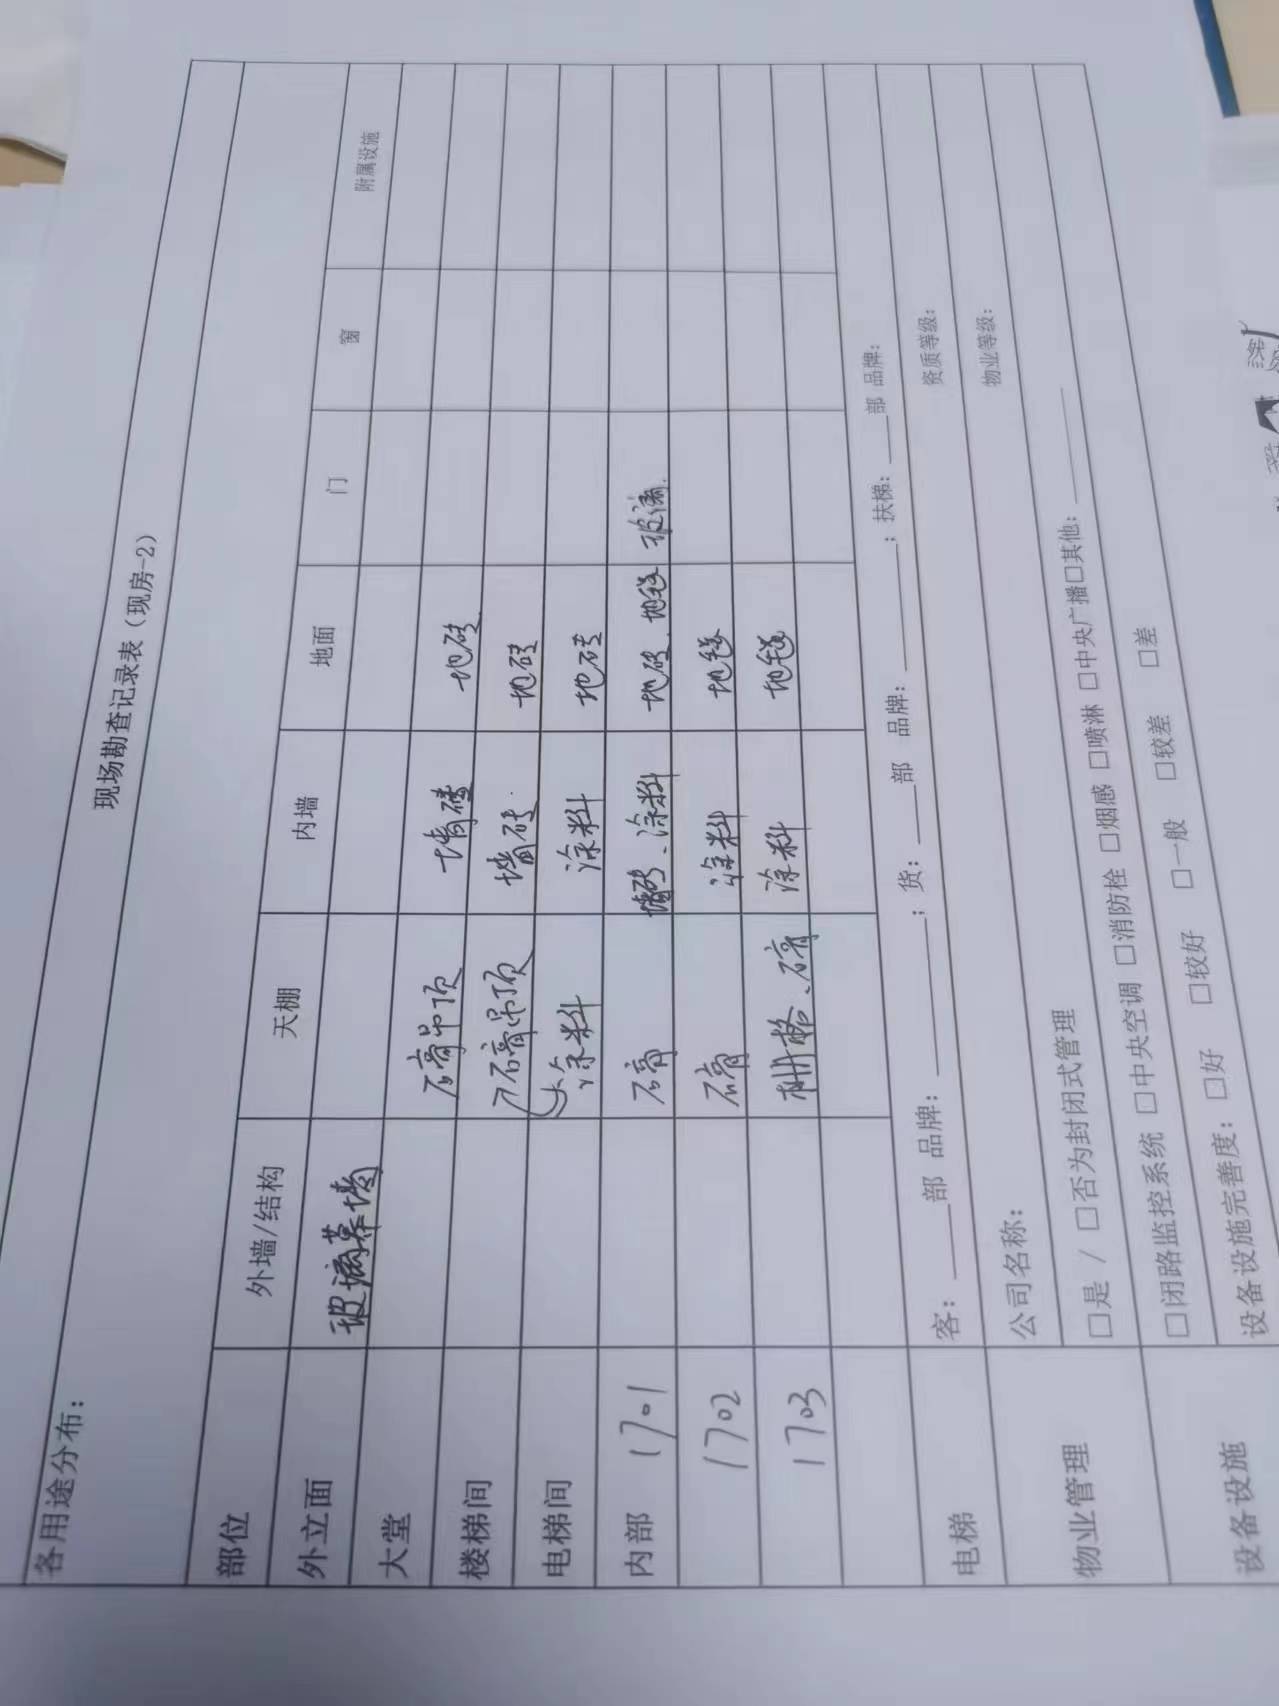 现场勘查记录表（现房-2）
各用途分布：
部位 外墙/结构 天棚 内墙 地面 门 窗 附属设施
外立面 玻璃幕墙
大堂 石膏吊顶 墙砖 地砖
楼梯间 石膏吊顶 墙砖 地砖
电梯间 涂料 涂料 地砖
内部 1701 石膏 墙砖、涂料 地砖、地毯 玻璃
1702 石膏 涂料 地毯
1703 栅格、石膏 涂料 地毯
电梯 客：____部 品牌：________；货：____部 品牌：________；扶梯：____部 品牌：
物业管理 公司名称： 资质等级：
□是 / □否为封闭式管理 物业等级：
设备设施 □闭路监控系统 □中央空调 □消防栓 □烟感 □喷淋 □中央广播□其他：________
设备设施完善度： □好 □较好 □一般 □较差 □差